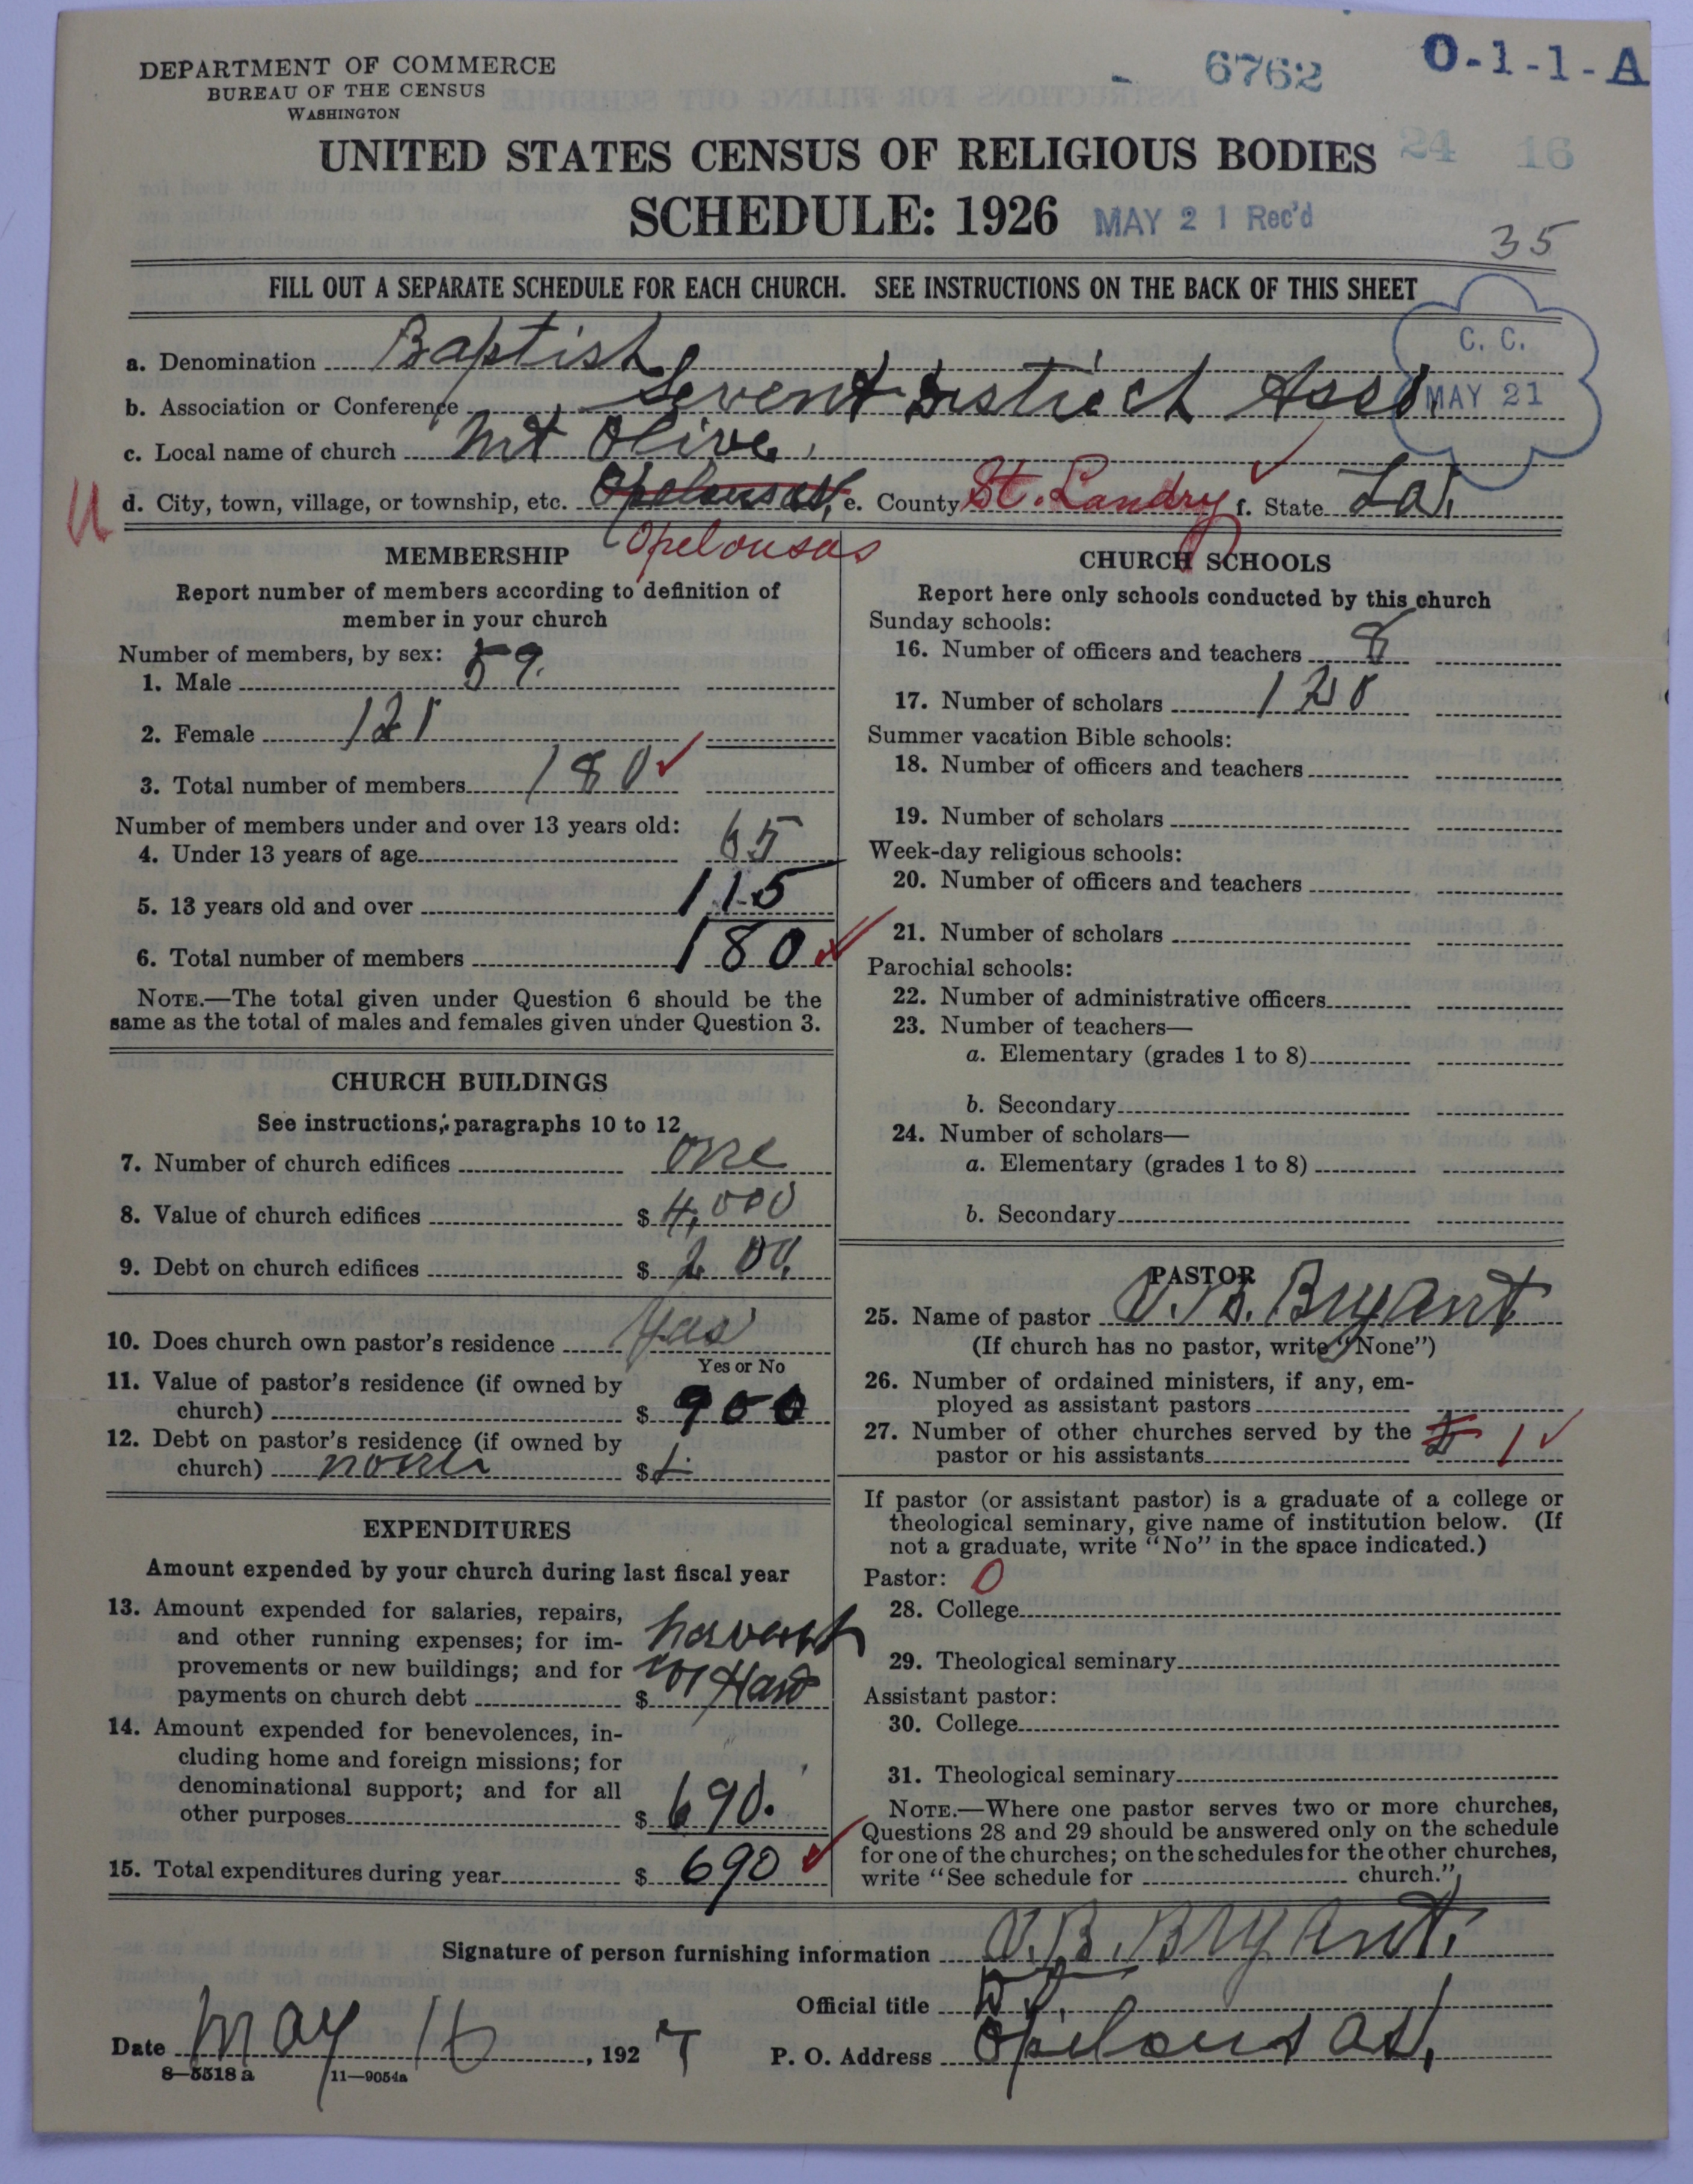 DEPARTMENT OF COMMERCE
BUREAU OF THE CENSUS
WASHINGTON
6762
O-1-1-A
UNITED STATES CENSUS OF RELIGIOUS BODIES
24 16
SCHEDULE: 1926
MAY 21 Rec'd
35
FILL OUT A SEPARATE SCHEDULE FOR EACH CHURCH. SEE INSTRUCTIONS ON THE BACK OF THIS SHEET
C. C.
MAY 21
a. Denomination Baptist
b. Association or Conference Sevent District Asso.
c. Local name of church Mt Olive
d. City, town, village, or township, etc. Opelousas, e. County St. Landry f. State La.
Opelousas
MEMBERSHIP
Report number of members according to definition of
member in your church
Number of members, by sex:
1. Male 59
2. Female 121
3. Total number of members 180
Number of members under and over 13 years old:
4. Under 13 years of age 65
5. 13 years old and over 115
6. Total number of members 180
NOTE.—The total given under Question 6 should be the
same as the total of males and females given under Question 3.
CHURCH BUILDINGS
See instructions, paragraphs 10 to 12
7. Number of church edifices one
8. Value of church edifices $ 4,000
9. Debt on church edifices $ 200.
10. Does church own pastor's residence Yas
Yes or No
11. Value of pastor's residence (if owned by
church) $ 900
12. Debt on pastor's residence (if owned by
church) none $
EXPENDITURES
Amount expended by your church during last fiscal year
13. Amount expended for salaries, repairs,
and other running expenses; for im-
provements or new buildings; and for
payments on church debt $
14. Amount expended for benevolences, in-
cluding home and foreign missions; for
denominational support; and for all
other purposes $ 690.
15. Total expenditures during year $ 690
CHURCH SCHOOLS
Report here only schools conducted by this church
Sunday schools:
16. Number of officers and teachers 8
17. Number of scholars
Summer vacation Bible schools:
18. Number of officers and teachers
19. Number of scholars
Week-day religious schools:
20. Number of officers and teachers
21. Number of scholars
Parochial schools:
22. Number of administrative officers
23. Number of teachers—
a. Elementary (grades 1 to 8)
b. Secondary
24. Number of scholars—
a. Elementary (grades 1 to 8)
b. Secondary
PASTOR
25. Name of pastor V. B. Bryant
(If church has no pastor, write "None")
26. Number of ordained ministers, if any, em-
ployed as assistant pastors
27. Number of other churches served by the
pastor or his assistants 1
If pastor (or assistant pastor) is a graduate of a college or
theological seminary, give name of institution below. (If
not a graduate, write "No" in the space indicated.)
Pastor: 0
28. College
29. Theological seminary
Assistant pastor:
30. College
31. Theological seminary
NOTE.—Where one pastor serves two or more churches,
Questions 28 and 29 should be answered only on the schedule
for one of the churches; on the schedules for the other churches,
write "See schedule for church."
Signature of person furnishing information V. B. Bryant.
Official title
Date May 16, 1927 P. O. Address Opelousas,
8—5518 a 11—9054a